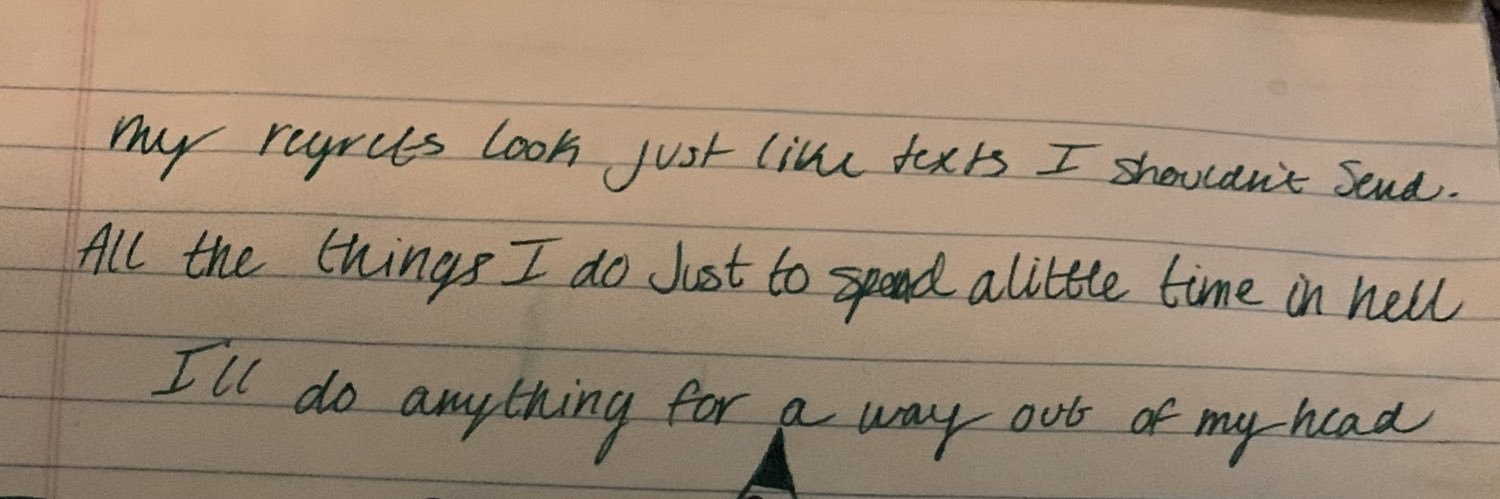 my regrets look just like texts I shouldn't send.
All the things I do Just to spend a little time in hell
I'll do anything for a way out of my head